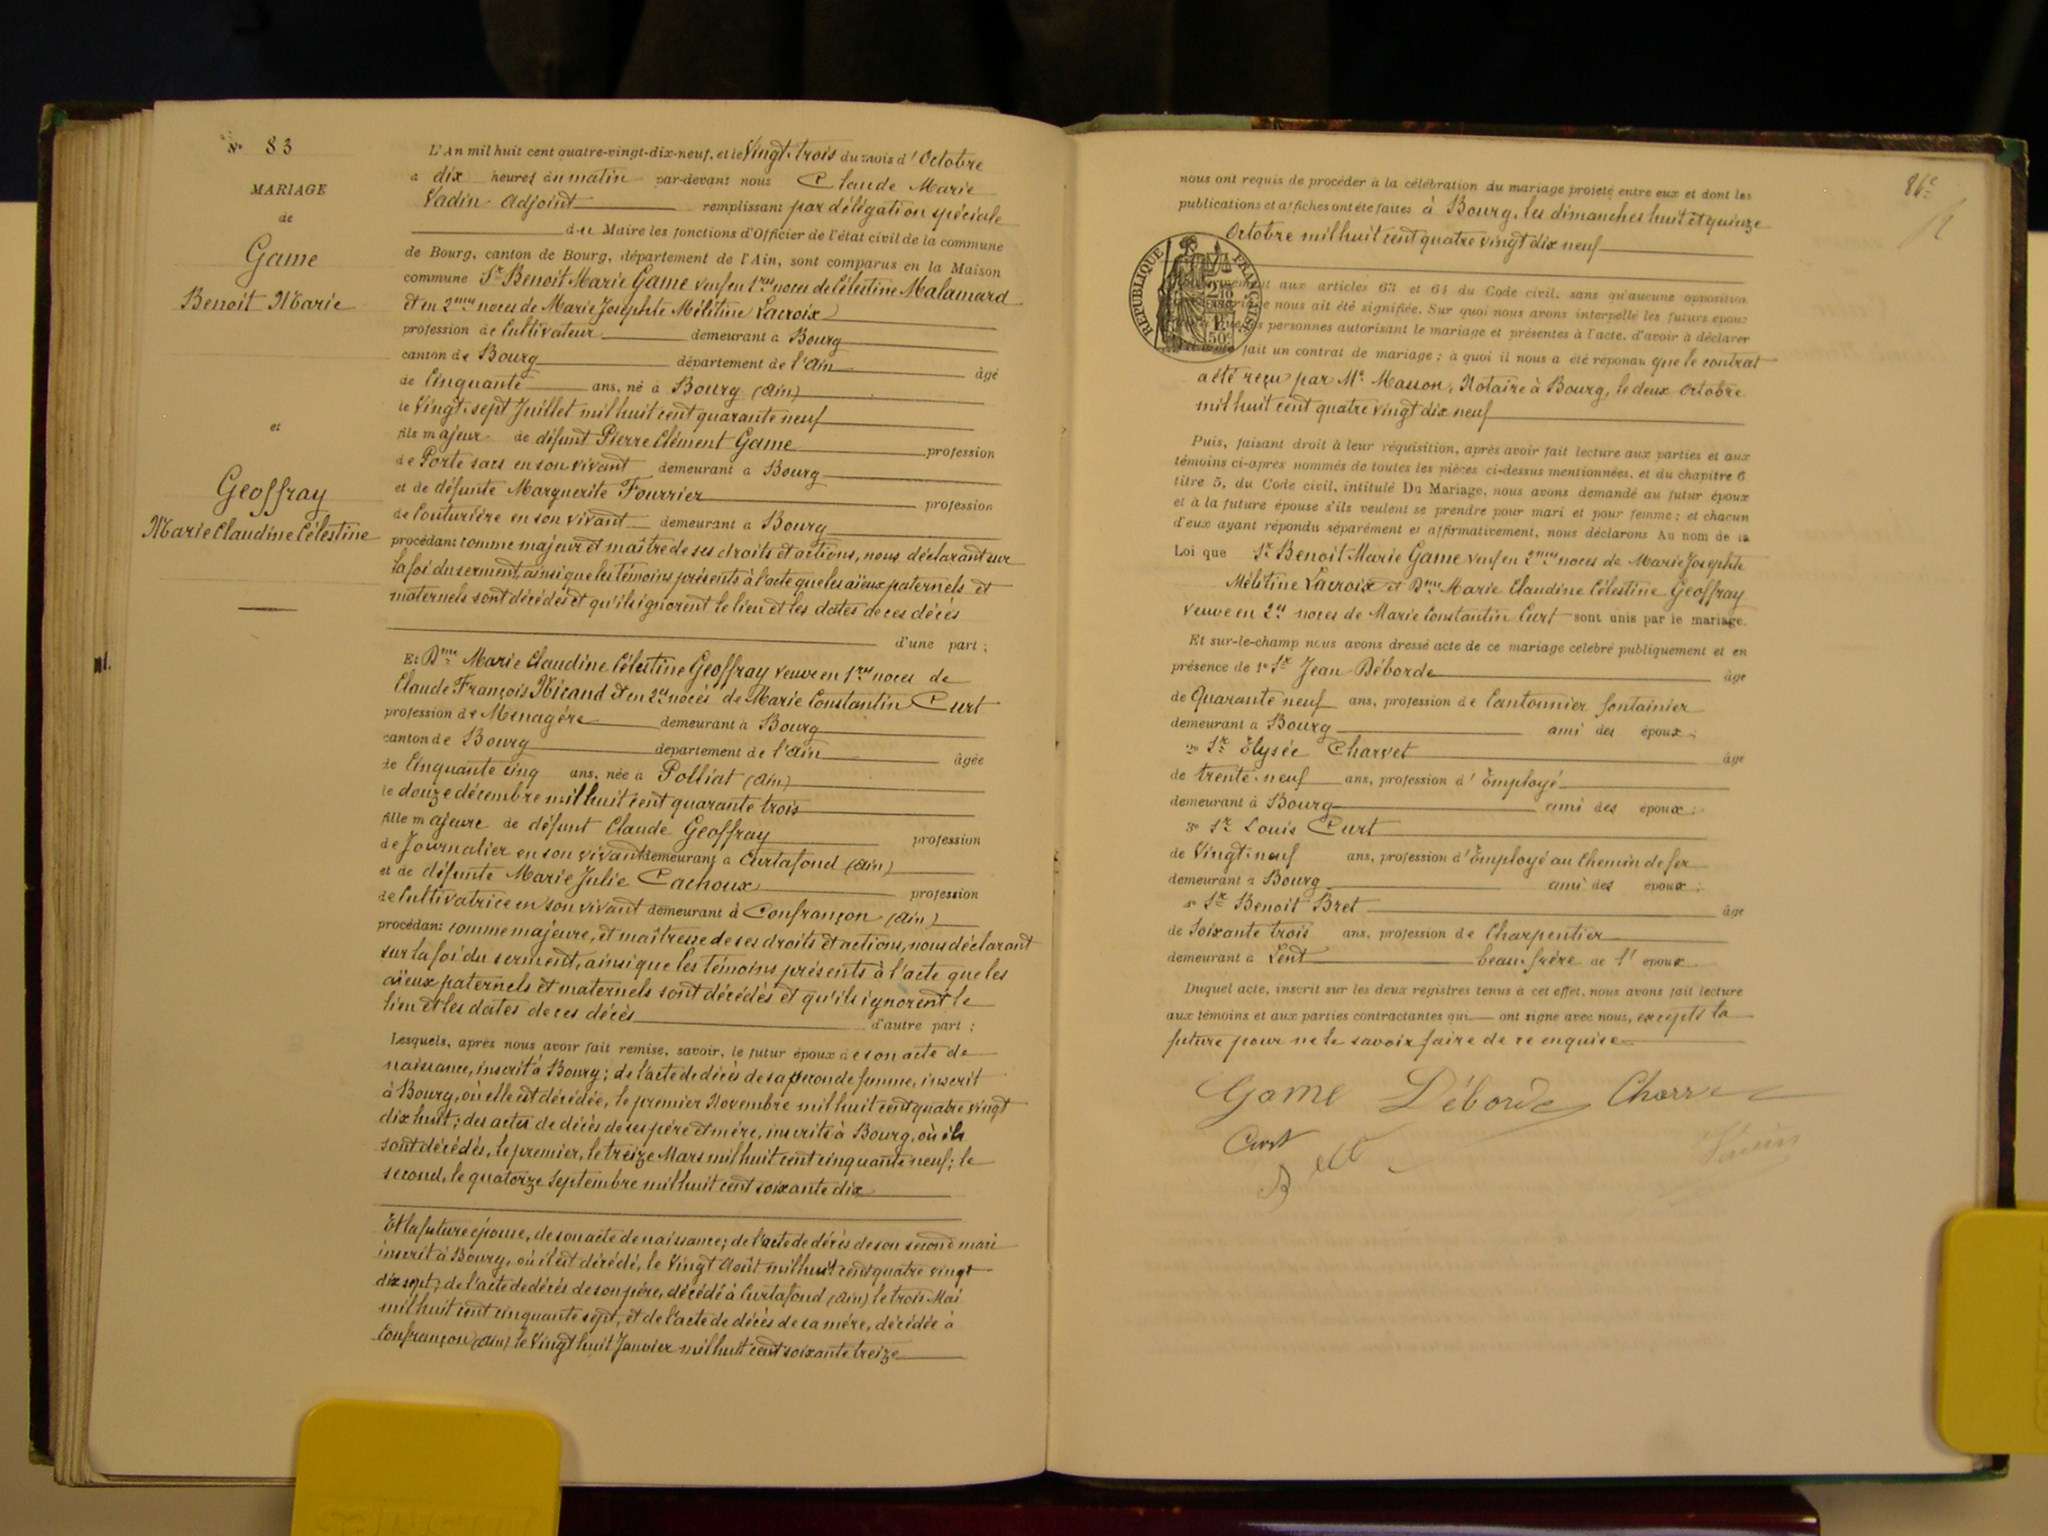 N° 83
MARIAGE
de
Game
Benoit Marie
et
Geoffray
Marie Claudine Célestine
L'An mil huit cent quatre-vingt-dix-neuf, et le Vingt-trois du mois d'Octobre
à dix heures du matin par-devant nous Claude Marie
Vadin Adjoint remplissant par délégation spéciale
du Maire les fonctions d'Officier de l'état civil de la commune
de Bourg, canton de Bourg, département de l'Ain, sont comparus en la Maison
commune Sr Benoit Marie Game veuf en 1res noces de Célestine Malamard
et en 2mes noces de Marie Josephte Mélitine Lacroix
profession de Cultivateur demeurant à Bourg
canton de Bourg département de l'Ain âgé
de Cinquante ans, né à Bourg (Ain)
le Vingt-sept Juillet mil huit cent quarante neuf
fils majeur de défunt Pierre Clément Game profession
de Porte sacs en son vivant demeurant à Bourg
et de défunte Marguerite Fourrier profession
de Couturière en son vivant demeurant à Bourg
procédant comme majeur et maître de ses droits et actions, nous déclarant sur
la foi du serment, ainsi que les témoins présents à l'acte que les aïeux paternels et
maternels sont décédés et qu'ils ignorent le lieu et les dates de ces décès
d'une part ;
Et Dme Marie Claudine Célestine Geoffray veuve en 1res noces de
Claude François Nicand et en 2es noces de Marie Constantin Curt
profession de Ménagère demeurant à Bourg
canton de Bourg département de l'Ain âgée
de Cinquante cinq ans, née à Polliat (Ain)
le douze décembre mil huit cent quarante trois
fille majeure de défunt Claude Geoffray profession
de Journalier en son vivant demeurant à Curtafond (Ain)
et de défunte Marie Julie Cachoux profession
de Cultivatrice en son vivant demeurant à Confrançon (Ain)
procédant comme majeure, et maîtresse de ses droits et actions, nous déclarant
sur la foi du serment, ainsi que les témoins présents à l'acte que les
aïeux paternels et maternels sont décédés et qu'ils ignorent le
lieu et les dates de ces décès d'autre part ;
Lesquels, après nous avoir fait remise, savoir, le futur époux de son acte de
naissance, inscrit à Bourg ; de l'acte de décès de sa seconde femme, inscrit
à Bourg, où elle est décédée, le premier Novembre mil huit cent quatre vingt
dix huit ; des actes de décès de ses père et mère, inscrits à Bourg, où ils
sont décédés, le premier, le treize Mars mil huit cent cinquante neuf ; le
second, le quatorze Septembre mil huit cent soixante dix
Et la future épouse, de son acte de naissance ; de l'acte de décès de son second mari
inscrit à Bourg, où il est décédé, le Vingt Août mil huit cent quatre vingt
dix sept ; de l'acte de décès de son père, décédé à Curtafond (Ain) le trois Mai
mil huit cent cinquante sept, et de l'acte de décès de sa mère, décédée à
Confrançon (Ain) le Vingt huit Janvier mil huit cent soixante treize
86e
nous ont requis de procéder à la célébration du mariage projeté entre eux et dont les
publications et affiches ont été faites à Bourg, les dimanches huit et quinze
Octobre mil huit cent quatre vingt dix neuf
REPUBLIQUE FRANÇAISE
aux articles 63 et 64 du Code civil, sans qu'aucune opposition
nous ait été signifiée. Sur quoi nous avons interpellé les futurs époux
personnes autorisant le mariage et présentes à l'acte, d'avoir à déclarer
fait un contrat de mariage ; à quoi il nous a été répondu que le contrat
a été reçu par Me Masson, Notaire à Bourg, le deux Octobre
mil huit cent quatre vingt dix neuf
Puis, faisant droit à leur réquisition, après avoir fait lecture aux parties et aux
témoins ci-après nommés de toutes les pièces ci-dessus mentionnées, et du chapitre 6
titre 5, du Code civil, intitulé Du Mariage, nous avons demandé au futur époux
et à la future épouse s'ils veulent se prendre pour mari et pour femme ; et chacun
d'eux ayant répondu séparément et affirmativement, nous déclarons Au nom de la
Loi que Sr Benoit Marie Game veuf en 2mes noces de Marie Josephte
Mélitine Lacroix et Dme Marie Claudine Célestine Geoffray
veuve en 2es noces de Marie Constantin Curt sont unis par le mariage.
Et sur-le-champ nous avons dressé acte de ce mariage célébré publiquement et en
présence de 1° Sr Jean Déborde âgé
de Quarante neuf ans, profession de Cantonnier fontainier
demeurant à Bourg ami des époux ;
2° Sr Elysée Charvet âgé
de trente-neuf ans, profession d'Employé
demeurant à Bourg ami des époux ;
3° Sr Louis Curt
de Vingt-neuf ans, profession d'Employé au Chemin de fer
demeurant à Bourg ami des époux ;
4° Sr Benoit Bret âgé
de Soixante trois ans, profession de Charpentier
demeurant à Lent beau-frère de l'époux
Duquel acte, inscrit sur les deux registres tenus à cet effet, nous avons fait lecture
aux témoins et aux parties contractantes qui ont signé avec nous, excepté la
future pour ne le savoir faire de ce enquise
Game Déborde Charve
Curt Vadin